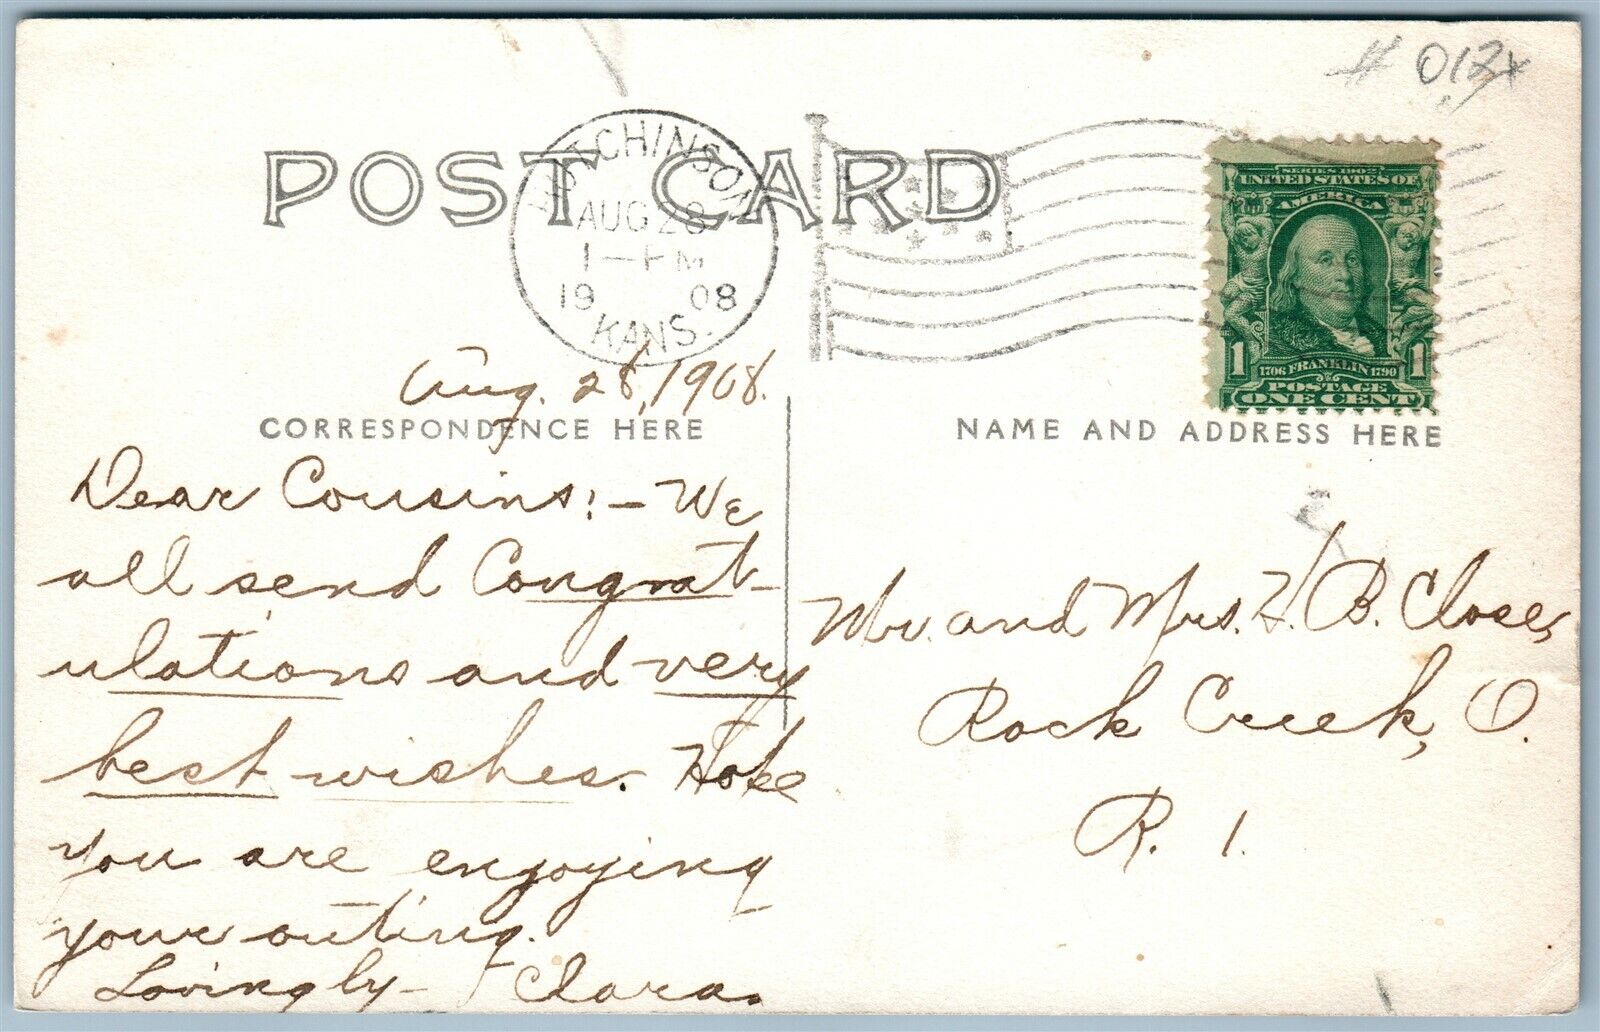 # 012x
POST CARD
HUTCHINSON
AUG 28
1-PM
19 08
KANS.
SERIES 1902
UNITED STATES OF
AMERICA
1 1
1706 FRANKLIN 1790
POSTAGE
ONE CENT
Aug. 28, 1908.
CORRESPONDENCE HERE
Dear Cousins:- We
all send Congrat-
ulations and very
best wishes. Hope
you are enjoying
your outing.
Lovingly- Clara.
NAME AND ADDRESS HERE
Mr. and Mrs. H. B. Close,
Rock Creek, O.
R. 1.